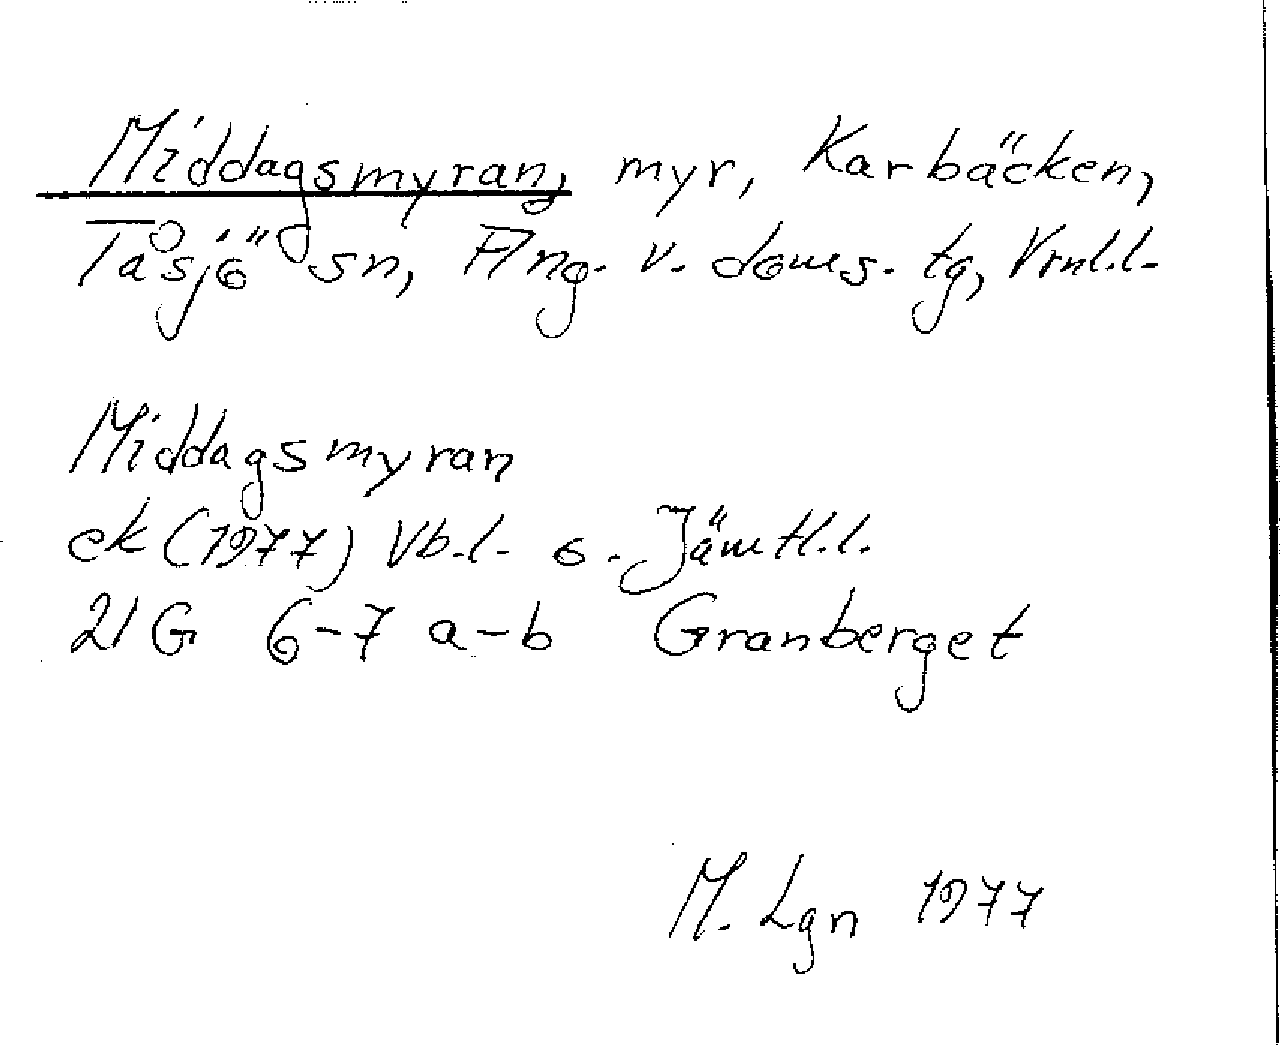 Middagsmyran, myr, Karbäcken,
Tåsjö sn, Ång. v. doms. tg, Vrnl.l.
Middagsmyran
ek (1977) Vb.l. o. Jämtl.l.
21 G 6-7 a-b Granberget
M. Lgn 1977